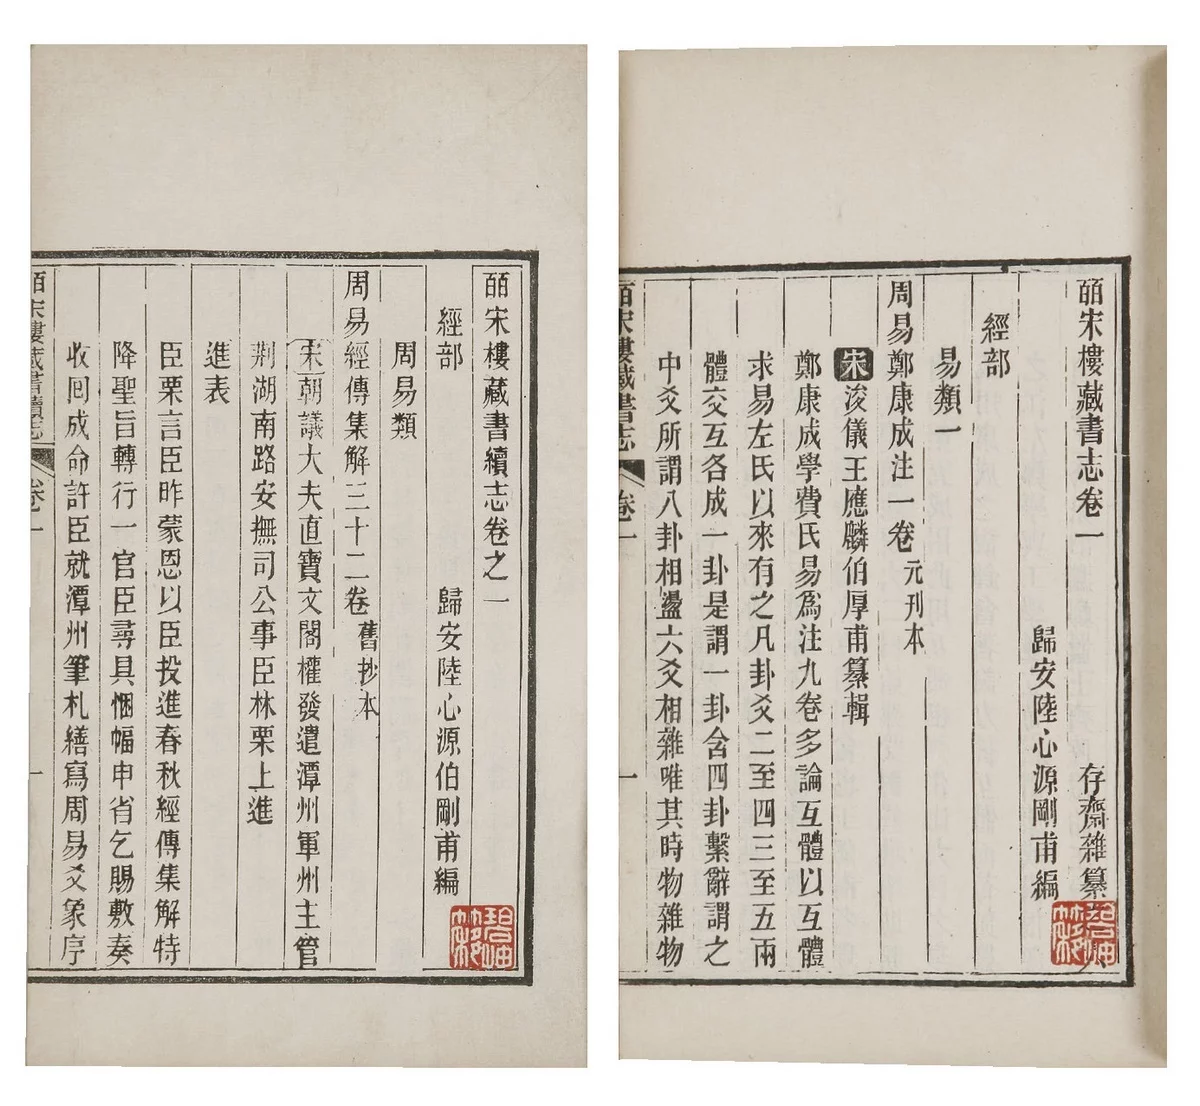 皕宋樓藏書志卷一 存齋雜纂
歸安陸心源剛甫編
經部
易類一
周易鄭康成注一卷 元刊本
宋浚儀王應麟伯厚甫纂輯
鄭康成學費氏易爲注九卷多論互體以互體
求易左氏以來有之凡卦爻二至四三至五兩
體交互各成一卦是謂一卦含四卦繫辭謂之
中爻所謂八卦相盪六爻相雜唯其時物雜物
皕宋樓藏書志 卷一 一
皕宋樓藏書續志卷之一
經部 歸安陸心源伯剛甫編
周易類
周易經傳集解三十二卷 舊抄本
宋朝議大夫直寶文閣權發遣潭州軍州主管
荆湖南路安撫司公事臣林栗上進
進表
臣栗言臣昨蒙恩以臣投進春秋經傳集解特
降聖旨轉行一官臣尋具悃幅申省乞賜敷奏
收回成命許臣就潭州筆札繕寫周易爻象序
皕宋樓藏書續志 卷一 一